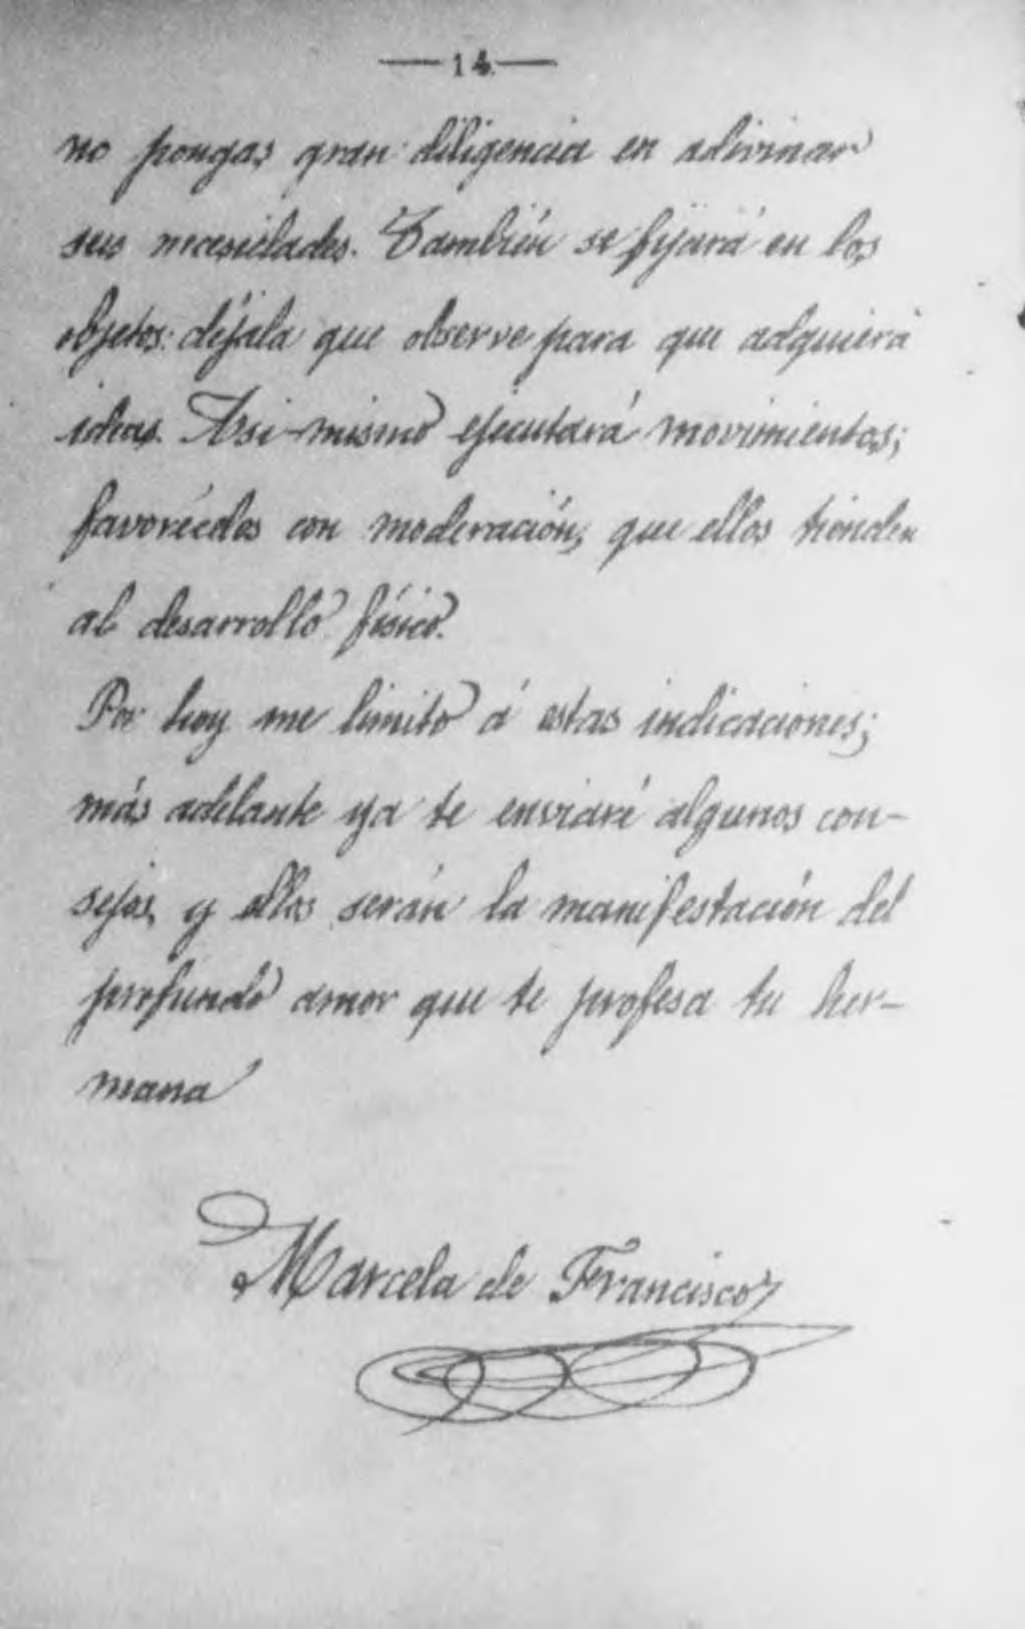 — 14 —
no pongas gran diligencia en adivinar
sus necesidades. También se fijará en los
objetos: déjala que observe para que adquiera
ideas. Asi-mismo ejecutará movimientos;
favorécelos con moderación, que ellos tienden
al desarrollo físico.
Por hoy me limito á estas indicaciones;
más adelante ya te enviaré algunos con-
sejos, y ellos serán la manifestación del
profundo amor que te profesa tu her-
mana
Marcela de Francisco